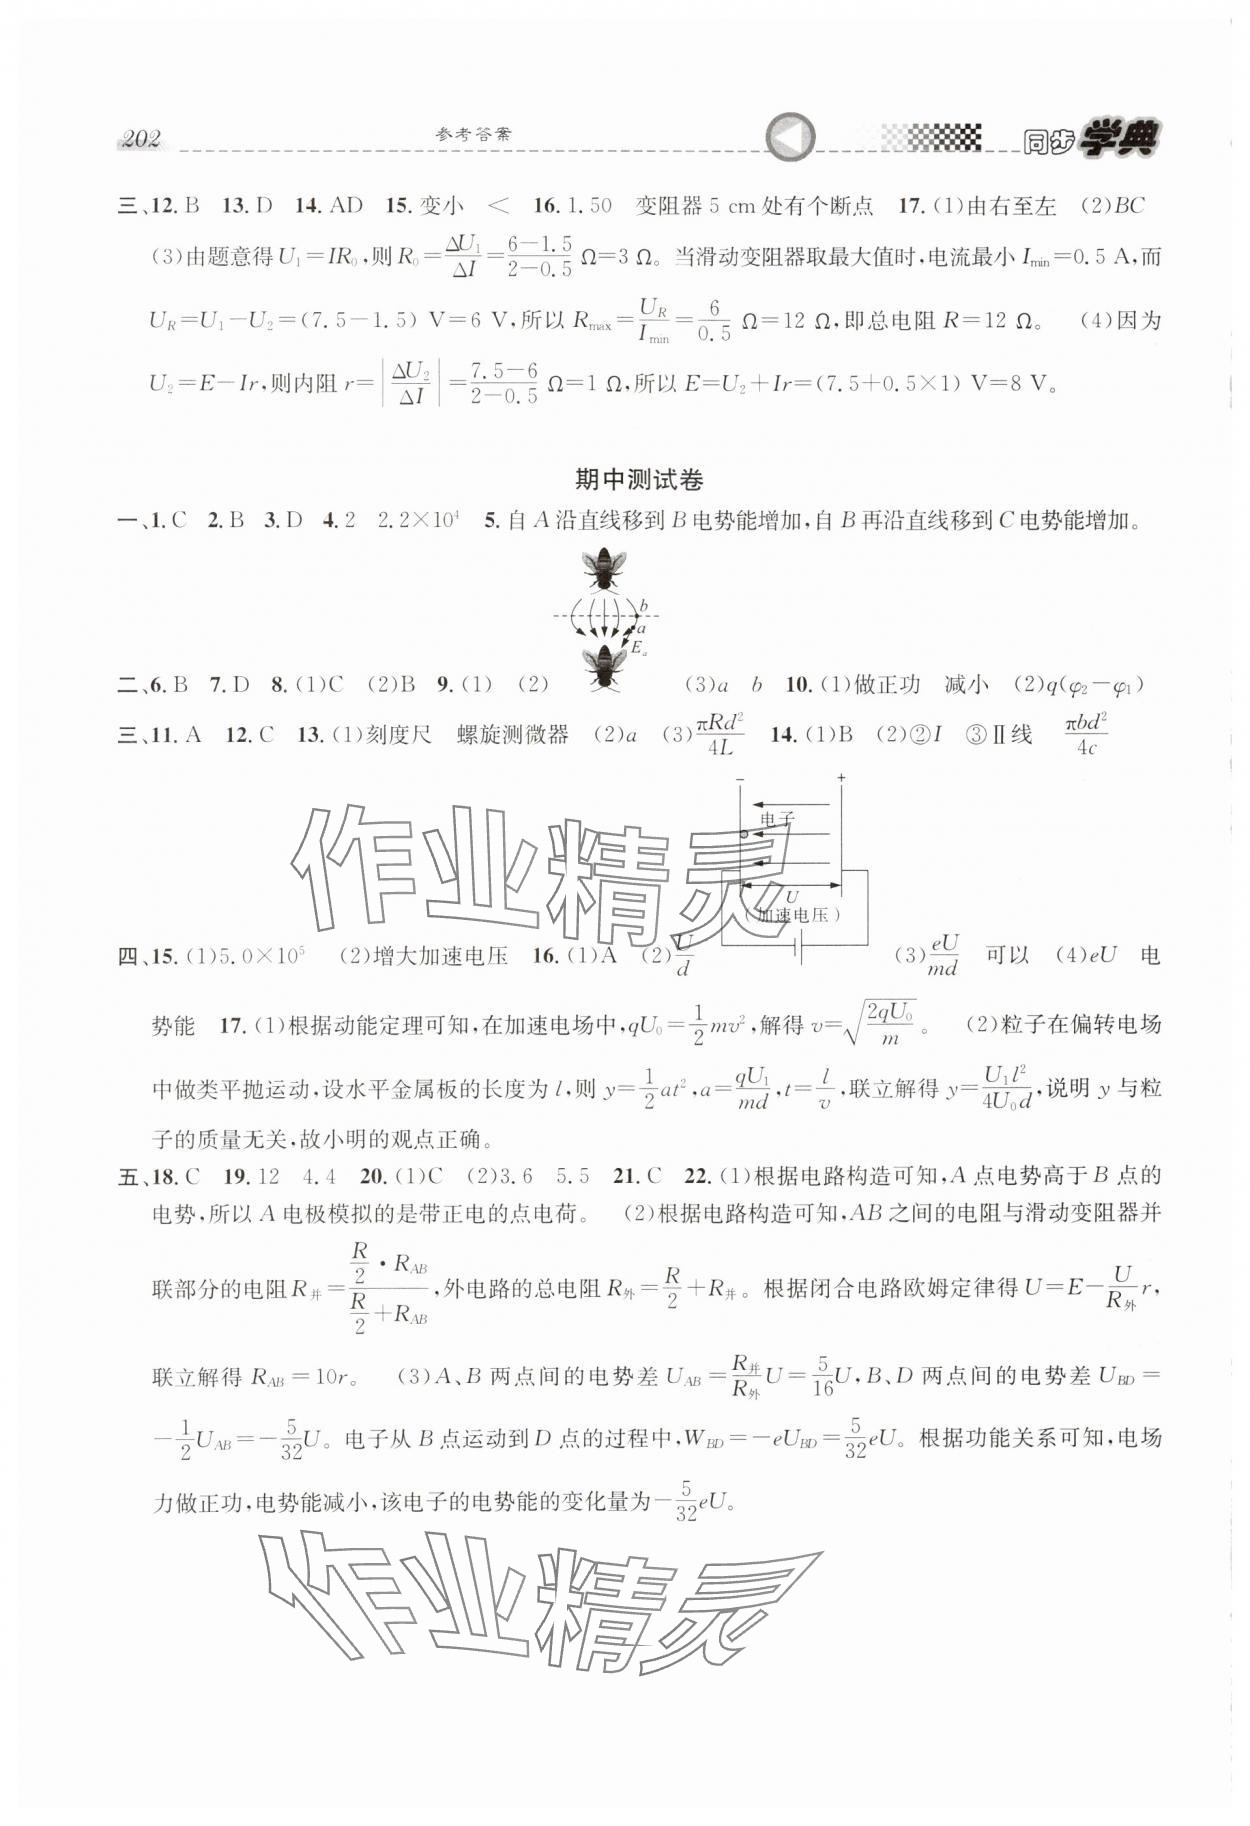 202 参考答案 同步学典
三、12. B 13. D 14. AD 15. 变小 < 16. 1.50 变阻器 5 cm 处有个断点 17. (1)由右至左 (2)BC
(3)由题意得 U₁=IR₀,则 R₀=ΔU₁/ΔI=(6-1.5)/(2-0.5) Ω=3 Ω。当滑动变阻器取最大值时,电流最小 Imin=0.5 A,而
U_R=U₁-U₂=(7.5-1.5) V=6 V,所以 Rmax=U_R/Imin=6/0.5 Ω=12 Ω,即总电阻 R=12 Ω。 (4)因为
U₂=E-Ir,则内阻 r=|ΔU₂/ΔI|=(7.5-6)/(2-0.5) Ω=1 Ω,所以 E=U₂+Ir=(7.5+0.5×1) V=8 V。
期中测试卷
一、1. C 2. B 3. D 4. 2 2.2×10⁴ 5. 自 A 沿直线移到 B 电势能增加,自 B 再沿直线移到 C 电势能增加。
b
a
E_a
二、6. B 7. D 8. (1)C (2)B 9. (1) (2) (3)a b 10. (1)做正功 减小 (2)q(φ₂-φ₁)
三、11. A 12. C 13. (1)刻度尺 螺旋测微器 (2)a (3)πRd²/4L 14. (1)B (2)②I ③Ⅱ线 πbd²/4c
- +
电子
U
(加速电压)
四、15. (1)5.0×10⁵ (2)增大加速电压 16. (1)A (2)U/d (3)eU/md 可以 (4)eU 电
势能 17. (1)根据动能定理可知,在加速电场中,qU₀=1/2 mv²,解得 v=√(2qU₀/m)。 (2)粒子在偏转电场
中做类平抛运动,设水平金属板的长度为 l,则 y=1/2 at²,a=qU₁/md,t=l/v,联立解得 y=U₁l²/4U₀d,说明 y 与粒
子的质量无关,故小明的观点正确。
五、18. C 19. 12 4.4 20. (1)C (2)3.6 5.5 21. C 22. (1)根据电路构造可知,A 点电势高于 B 点的
电势,所以 A 电极模拟的是带正电的点电荷。 (2)根据电路构造可知,AB 之间的电阻与滑动变阻器并
联部分的电阻 R并=(R/2·R_AB)/(R/2+R_AB),外电路的总电阻 R外=R/2+R并。根据闭合电路欧姆定律得 U=E-U/R外 r,
联立解得 R_AB=10r。 (3)A、B 两点间的电势差 U_AB=R并/R外 U=5/16 U,B、D 两点间的电势差 U_BD=
-1/2 U_AB=-5/32 U。电子从 B 点运动到 D 点的过程中,W_BD=-eU_BD=5/32 eU。根据功能关系可知,电场
力做正功,电势能减小,该电子的电势能的变化量为-5/32 eU。
作业精灵
作业精灵